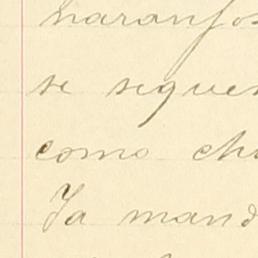 naranjos
se seques
como ch
Ya mand